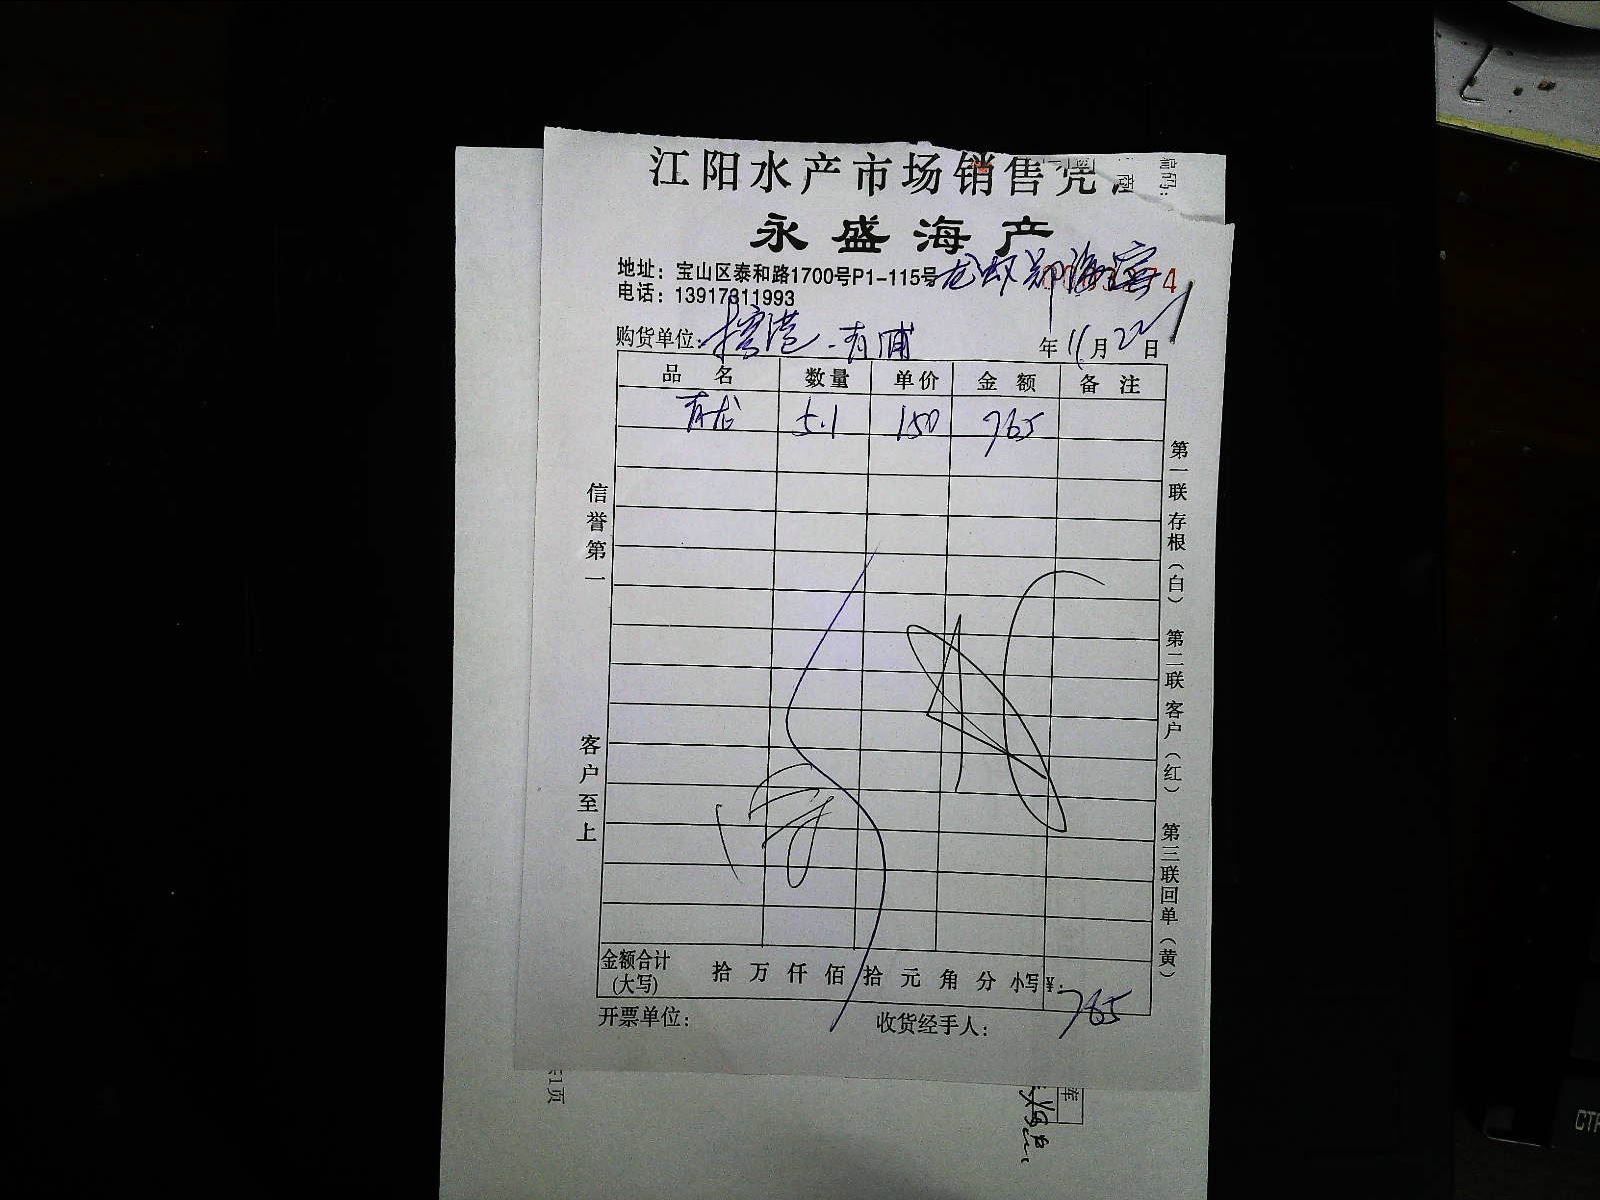 江阳水产市场销售凭
永盛海产
地址：宝山区泰和路1700号P1-115号 龙虾 郑海
电话：13917311993
购货单位： 港-青浦 年 11月 22日
品名 数量 单价 金额 备注
青龙 5.1 150 765
信誉第一
客户至上
第一联 存根（白） 第二联 客户（红） 第三联 回单（黄）
金额合计(大写) 拾 万 仟 佰 拾 元 角 分 小写¥： 765
开票单位： 收货经手人：
1页
编码：